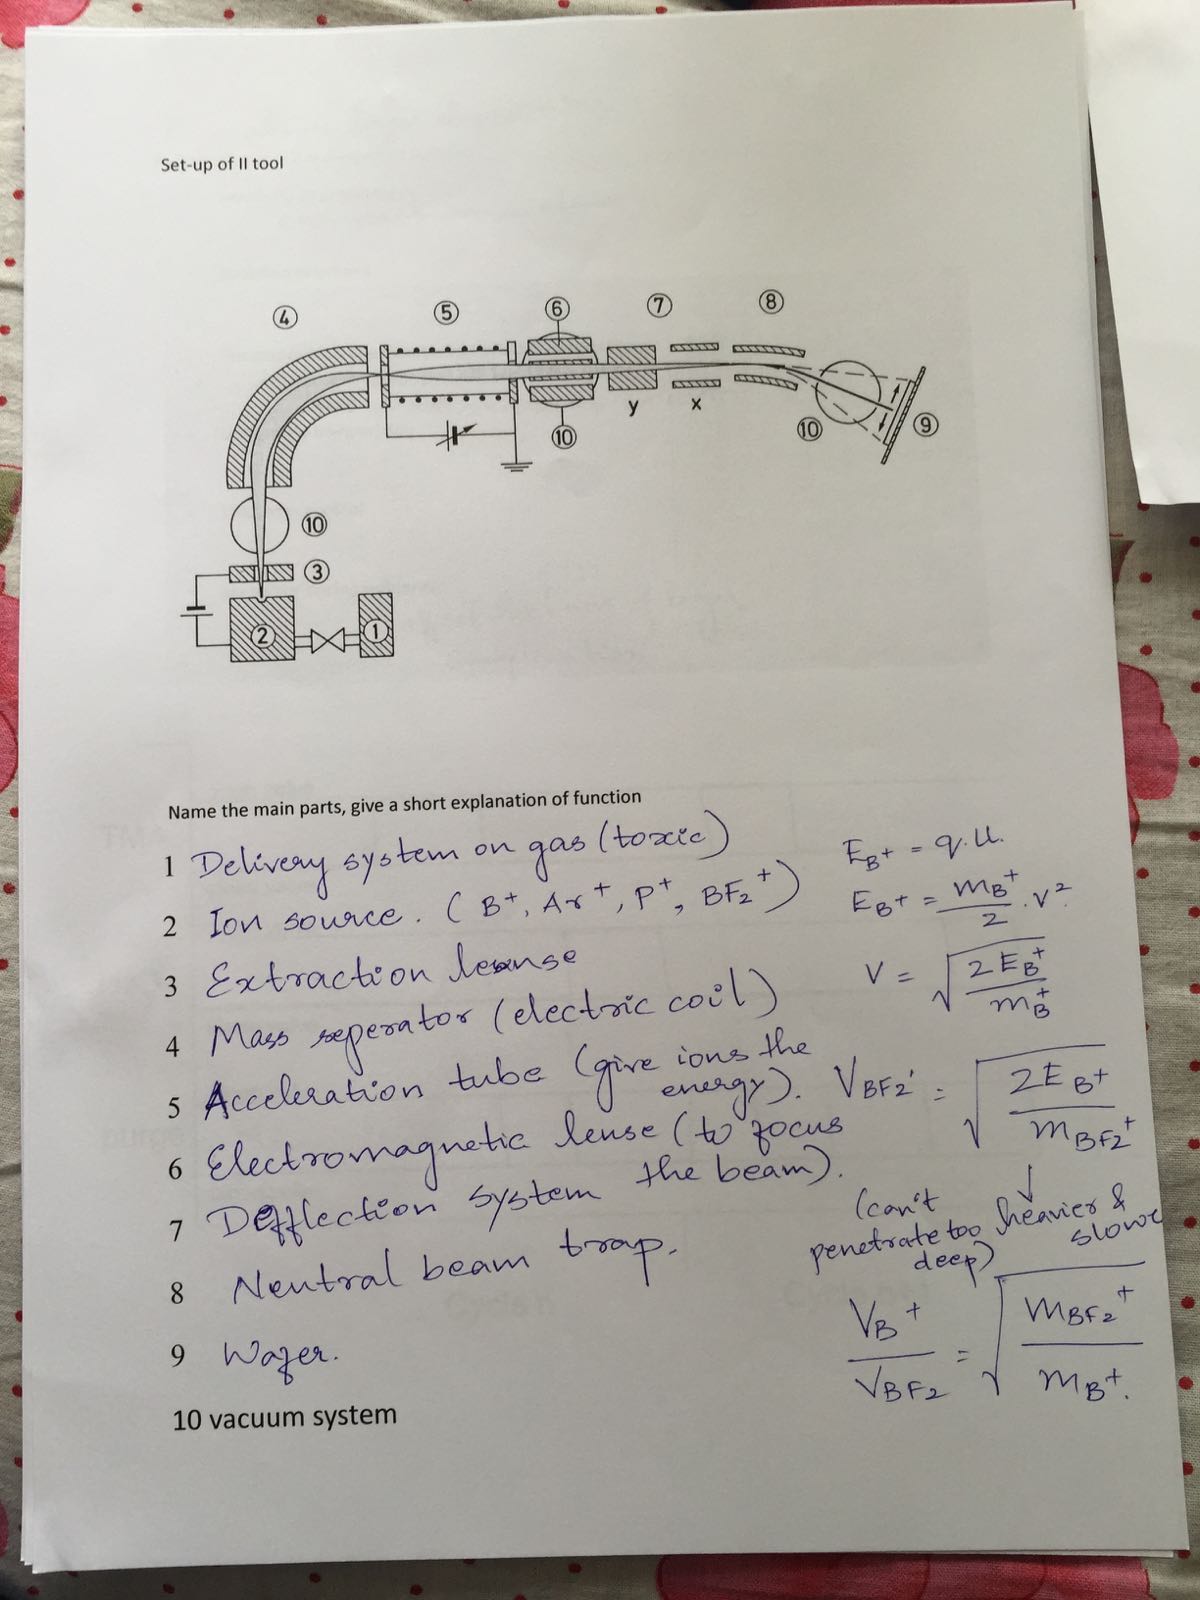 Set-up of II tool
④ ⑤ ⑥ ⑦ ⑧
y x ⑩ ⑩ ⑨
⑩
③
② ①
Name the main parts, give a short explanation of function
1 Delivery system on gas (toxic)
2 Ion source. ( B+, Ar+, P+, BF2+)
3 Extraction lense
4 Mass seperator (electric coil)
5 Acceleration tube (give ions the energy).
6 Electromagnetic lense (to focus the beam).
7 Defflection system
8 Neutral beam trap.
9 Wafer.
10 vacuum system
EB+ = q.U.
EB+ = mB+/2 . v2.
V = √(2EB+/mB+)
VBF2' = √(2EB+/mBF2+)
↓
heavier & slowe
(can't penetrate too deep)
VB+/VBF2 = √(mBF2+/mB+.)